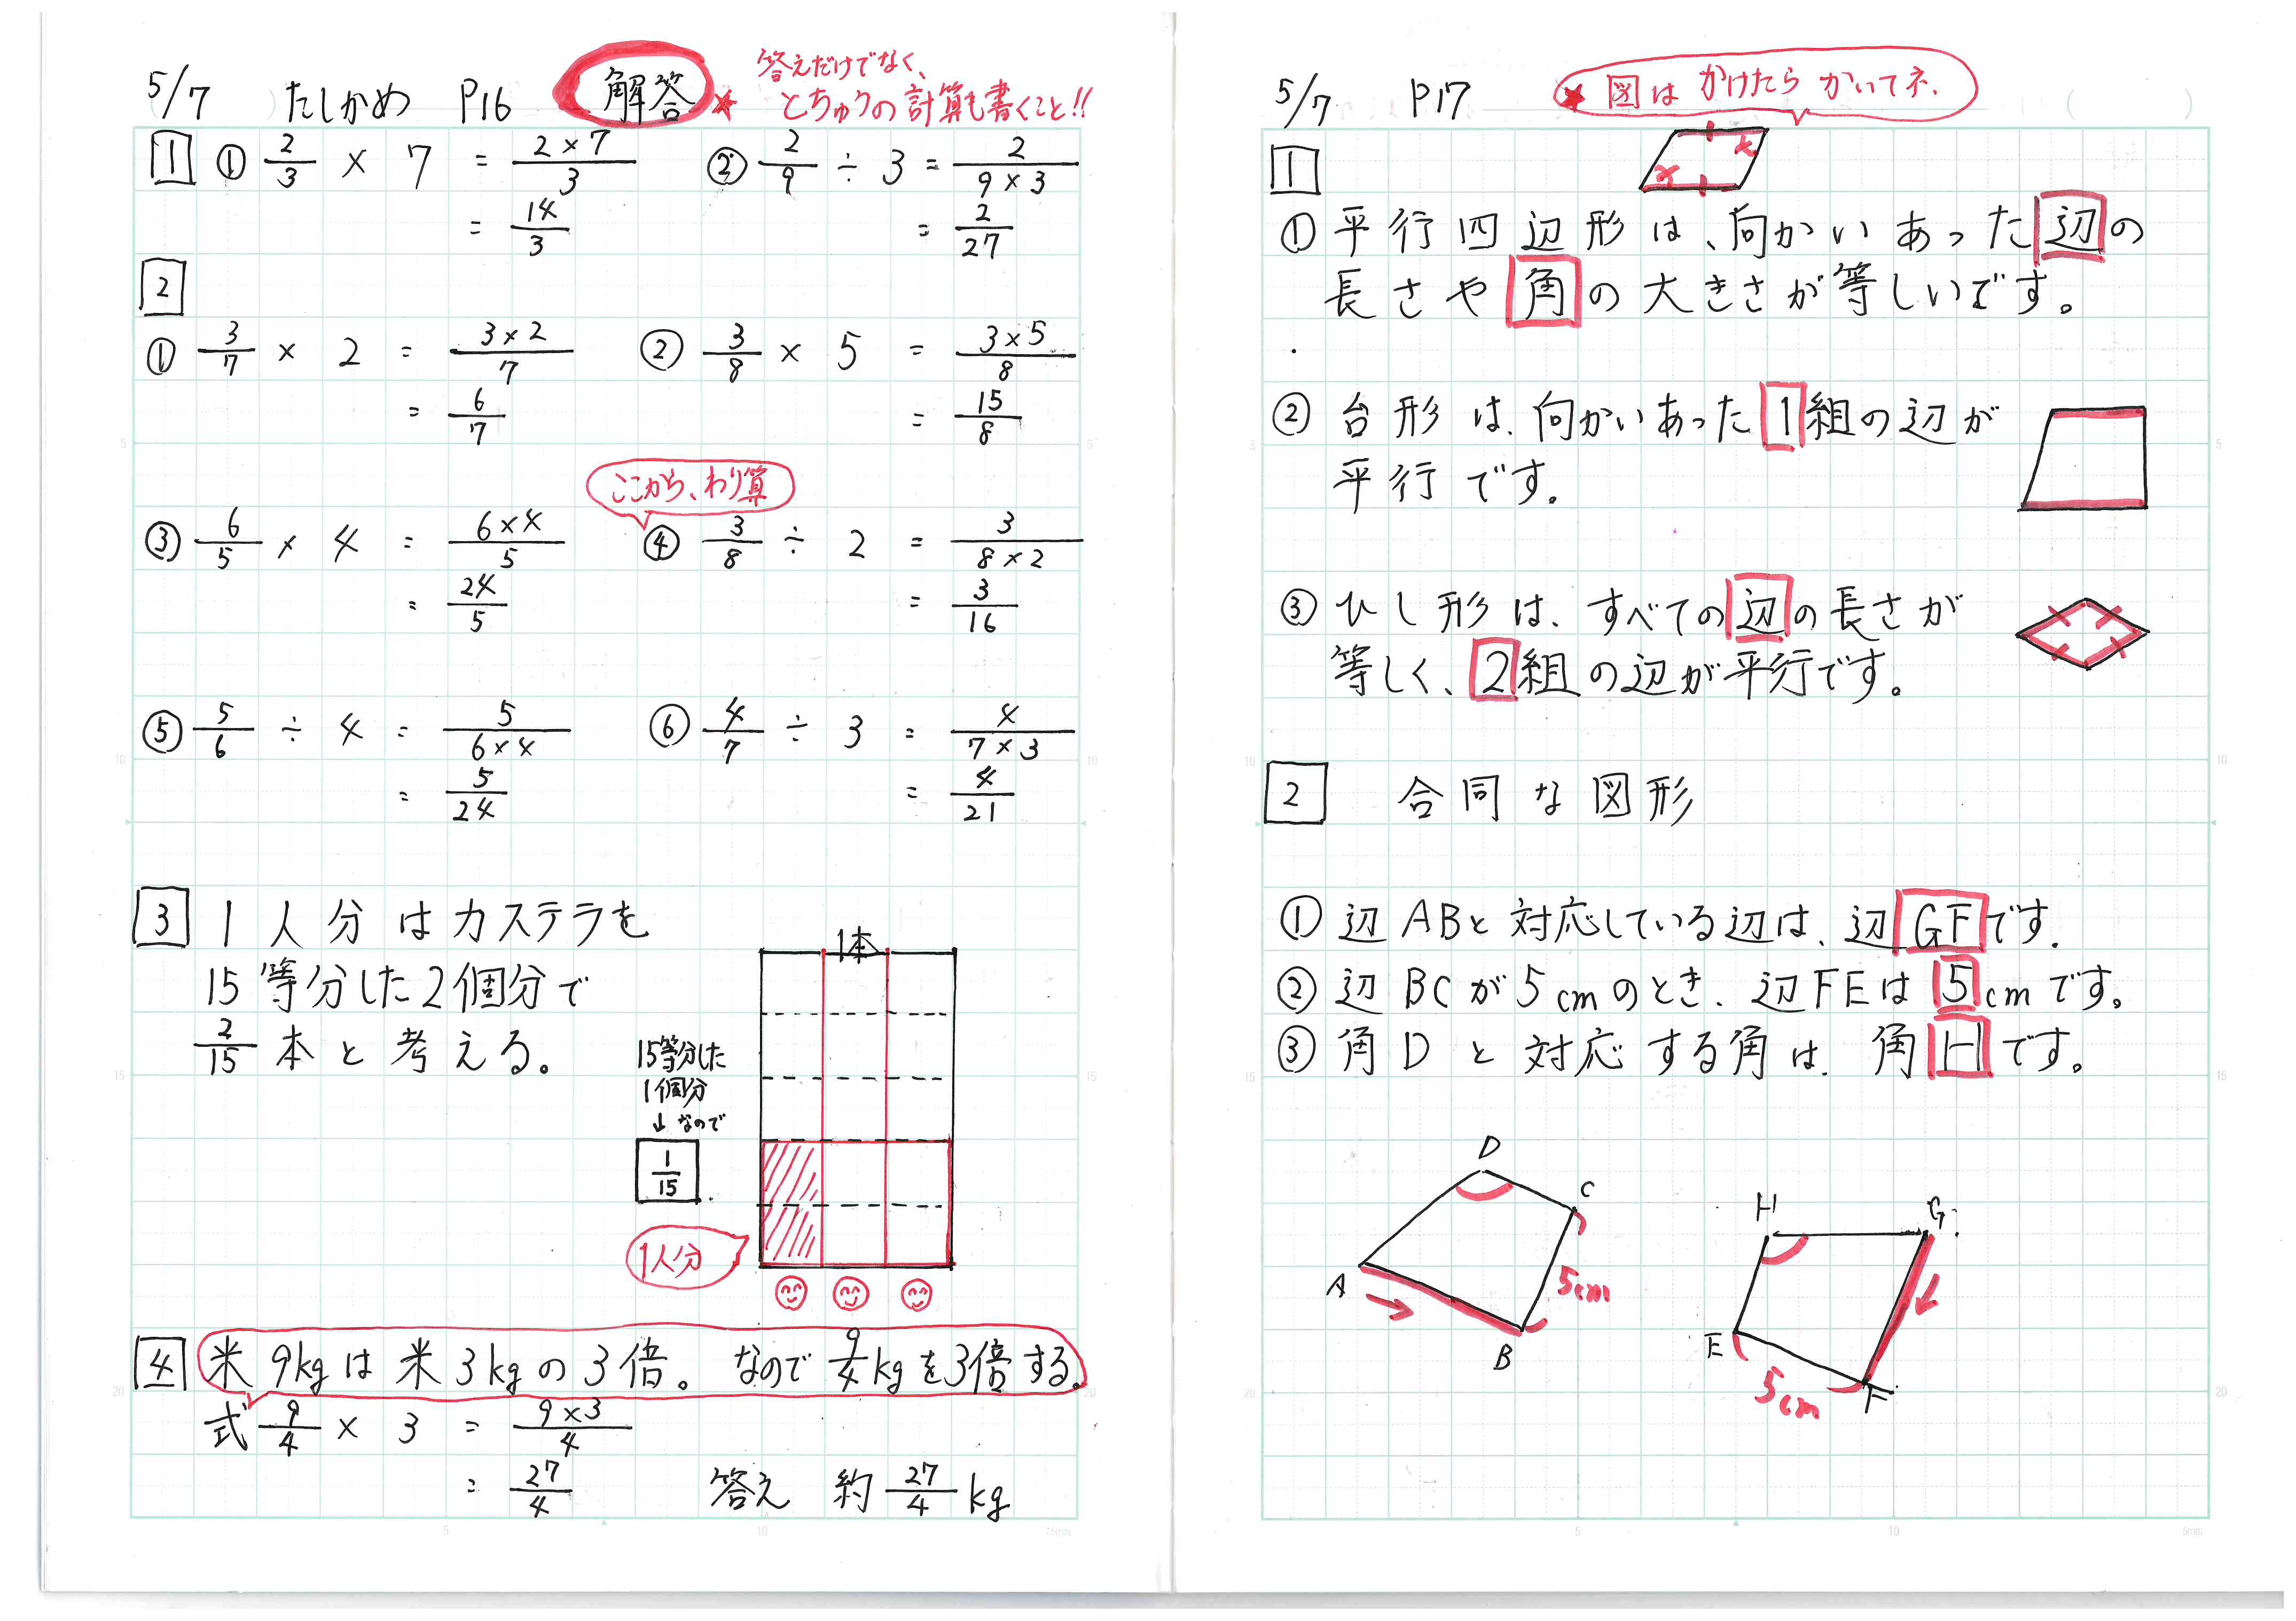 5/7 たしかめ P16 解答 ★ 答えだけでなく、
とちゅうの計算も書くこと!!
1 ① 2/3 × 7 = 2×7/3
= 14/3
② 2/9 ÷ 3 = 2/9×3
= 2/27
2
① 3/7 × 2 = 3×2/7
= 6/7
② 3/8 × 5 = 3×5/8
= 15/8
③ 6/5 × 4 = 6×4/5
= 24/5
ここから、わり算
④ 3/8 ÷ 2 = 3/8×2
= 3/16
⑤ 5/6 ÷ 4 = 5/6×4
= 5/24
⑥ 4/7 ÷ 3 = 4/7×3
= 4/21
3 1人分はカステラを
15等分した2個分で
2/15本と考える。
1本
15等分した
1個分
↓なので
1/15
1人分
4 米9kgは米3kgの3倍。なので9/4kgを3倍する。
式 9/4 × 3 = 9×3/4
= 27/4 答え 約27/4kg
5 10 75mm
5
10
15
20
5/7 P17 ★図はかけたらかいてネ.
1
①平行四辺形は、向かいあった辺の
長さや角の大きさが等しいです。
②台形は、向かいあった1組の辺が
平行です。
③ひし形は、すべての辺の長さが
等しく、2組の辺が平行です。
2 合同な図形
①辺ABと対応している辺は、辺GFです.
②辺BCが5cmのとき、辺FEは5cmです。
③角Dと対応する角は、角Hです。
D
C
A
B
5cm
H
G
E
F
5cm
5 10 5mm
5
10
15
20